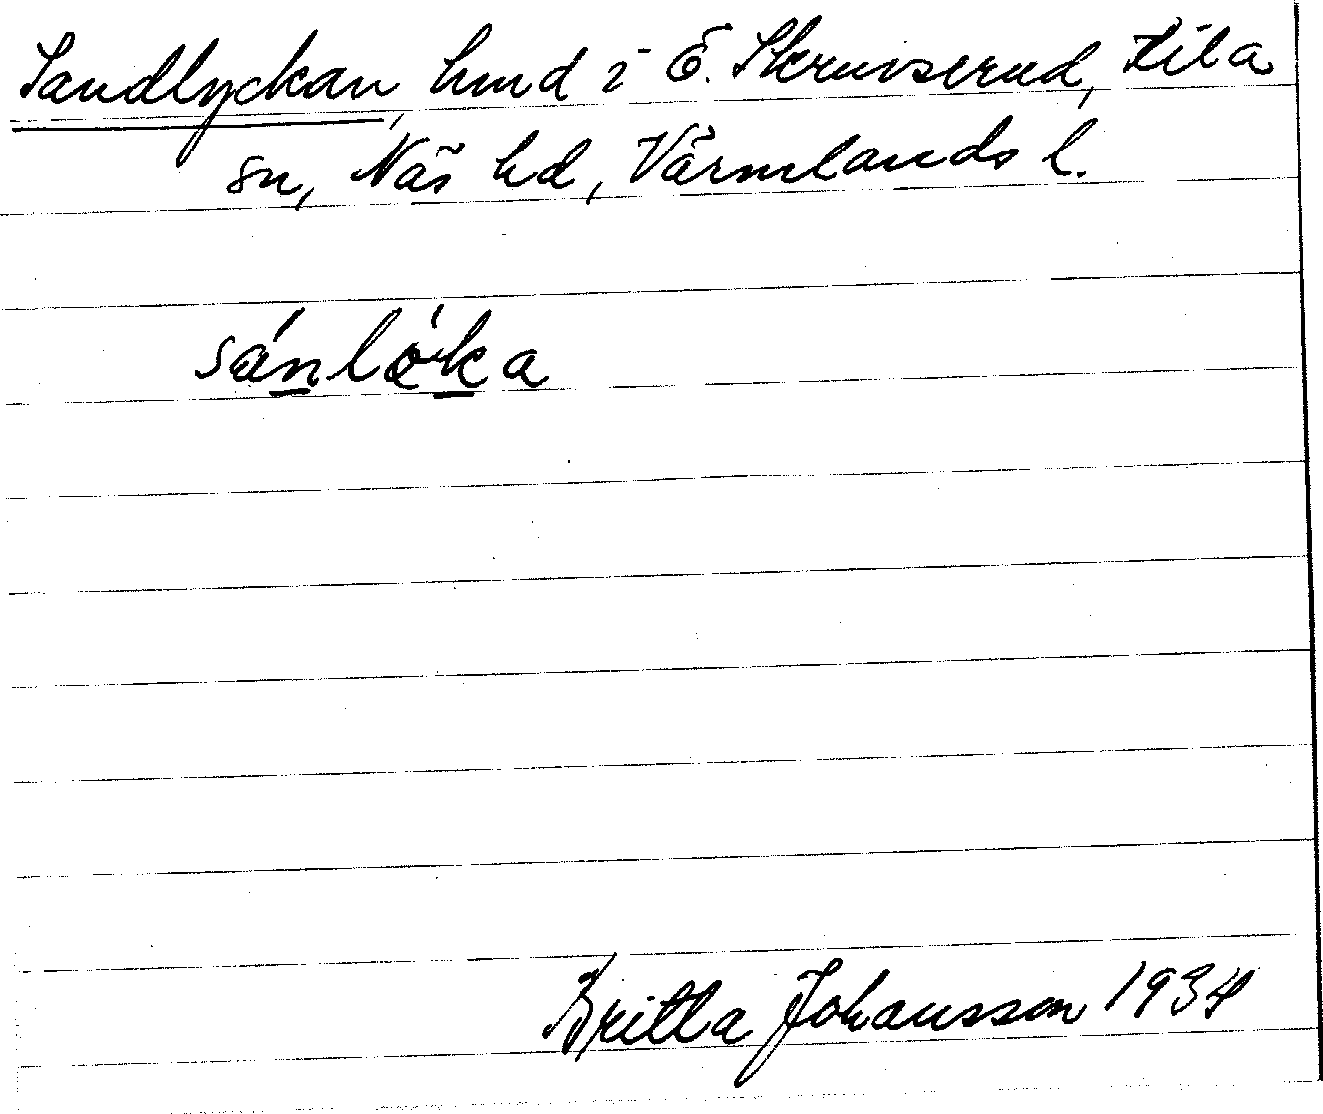 Sandlyckan, lund i Ö. Skruvserud, Kila
sn, Näs hd, Värmlands l.
sánlö̀ka
Britta Johansson 1934